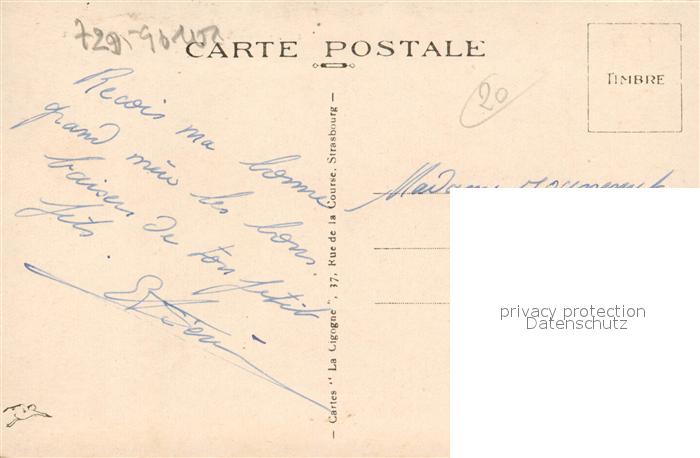 CARTE POSTALE
TIMBRE
20
Recois ma bonne
grand mère les bons
baisers de ton petit
fils.
Etienne
Madame
Cartes "La Cigogne", 37, Rue de la Course, Strasbourg
privacy protection
Datenschutz